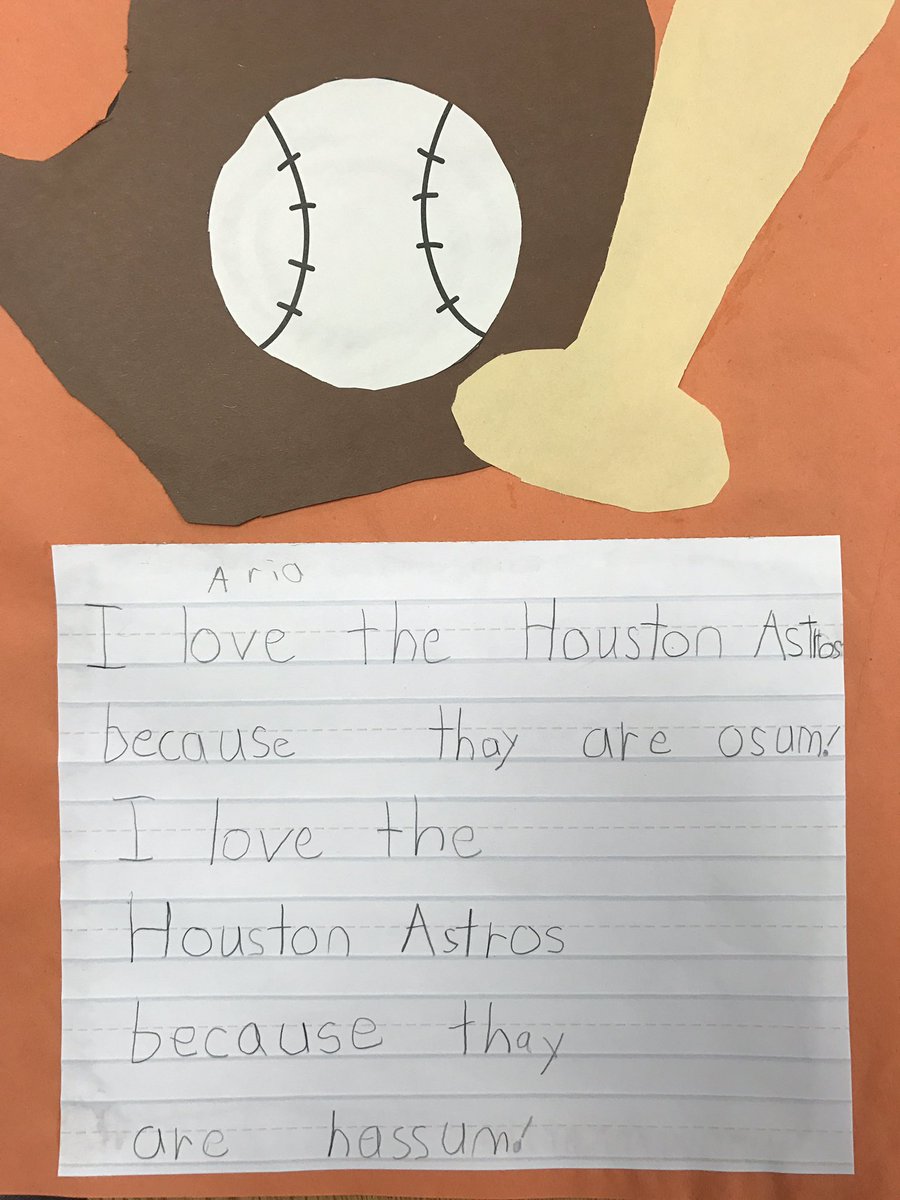 Ario
I love the Houston Astros
because thay are osum!
I love the
Houston Astros
because thay
are hassum!